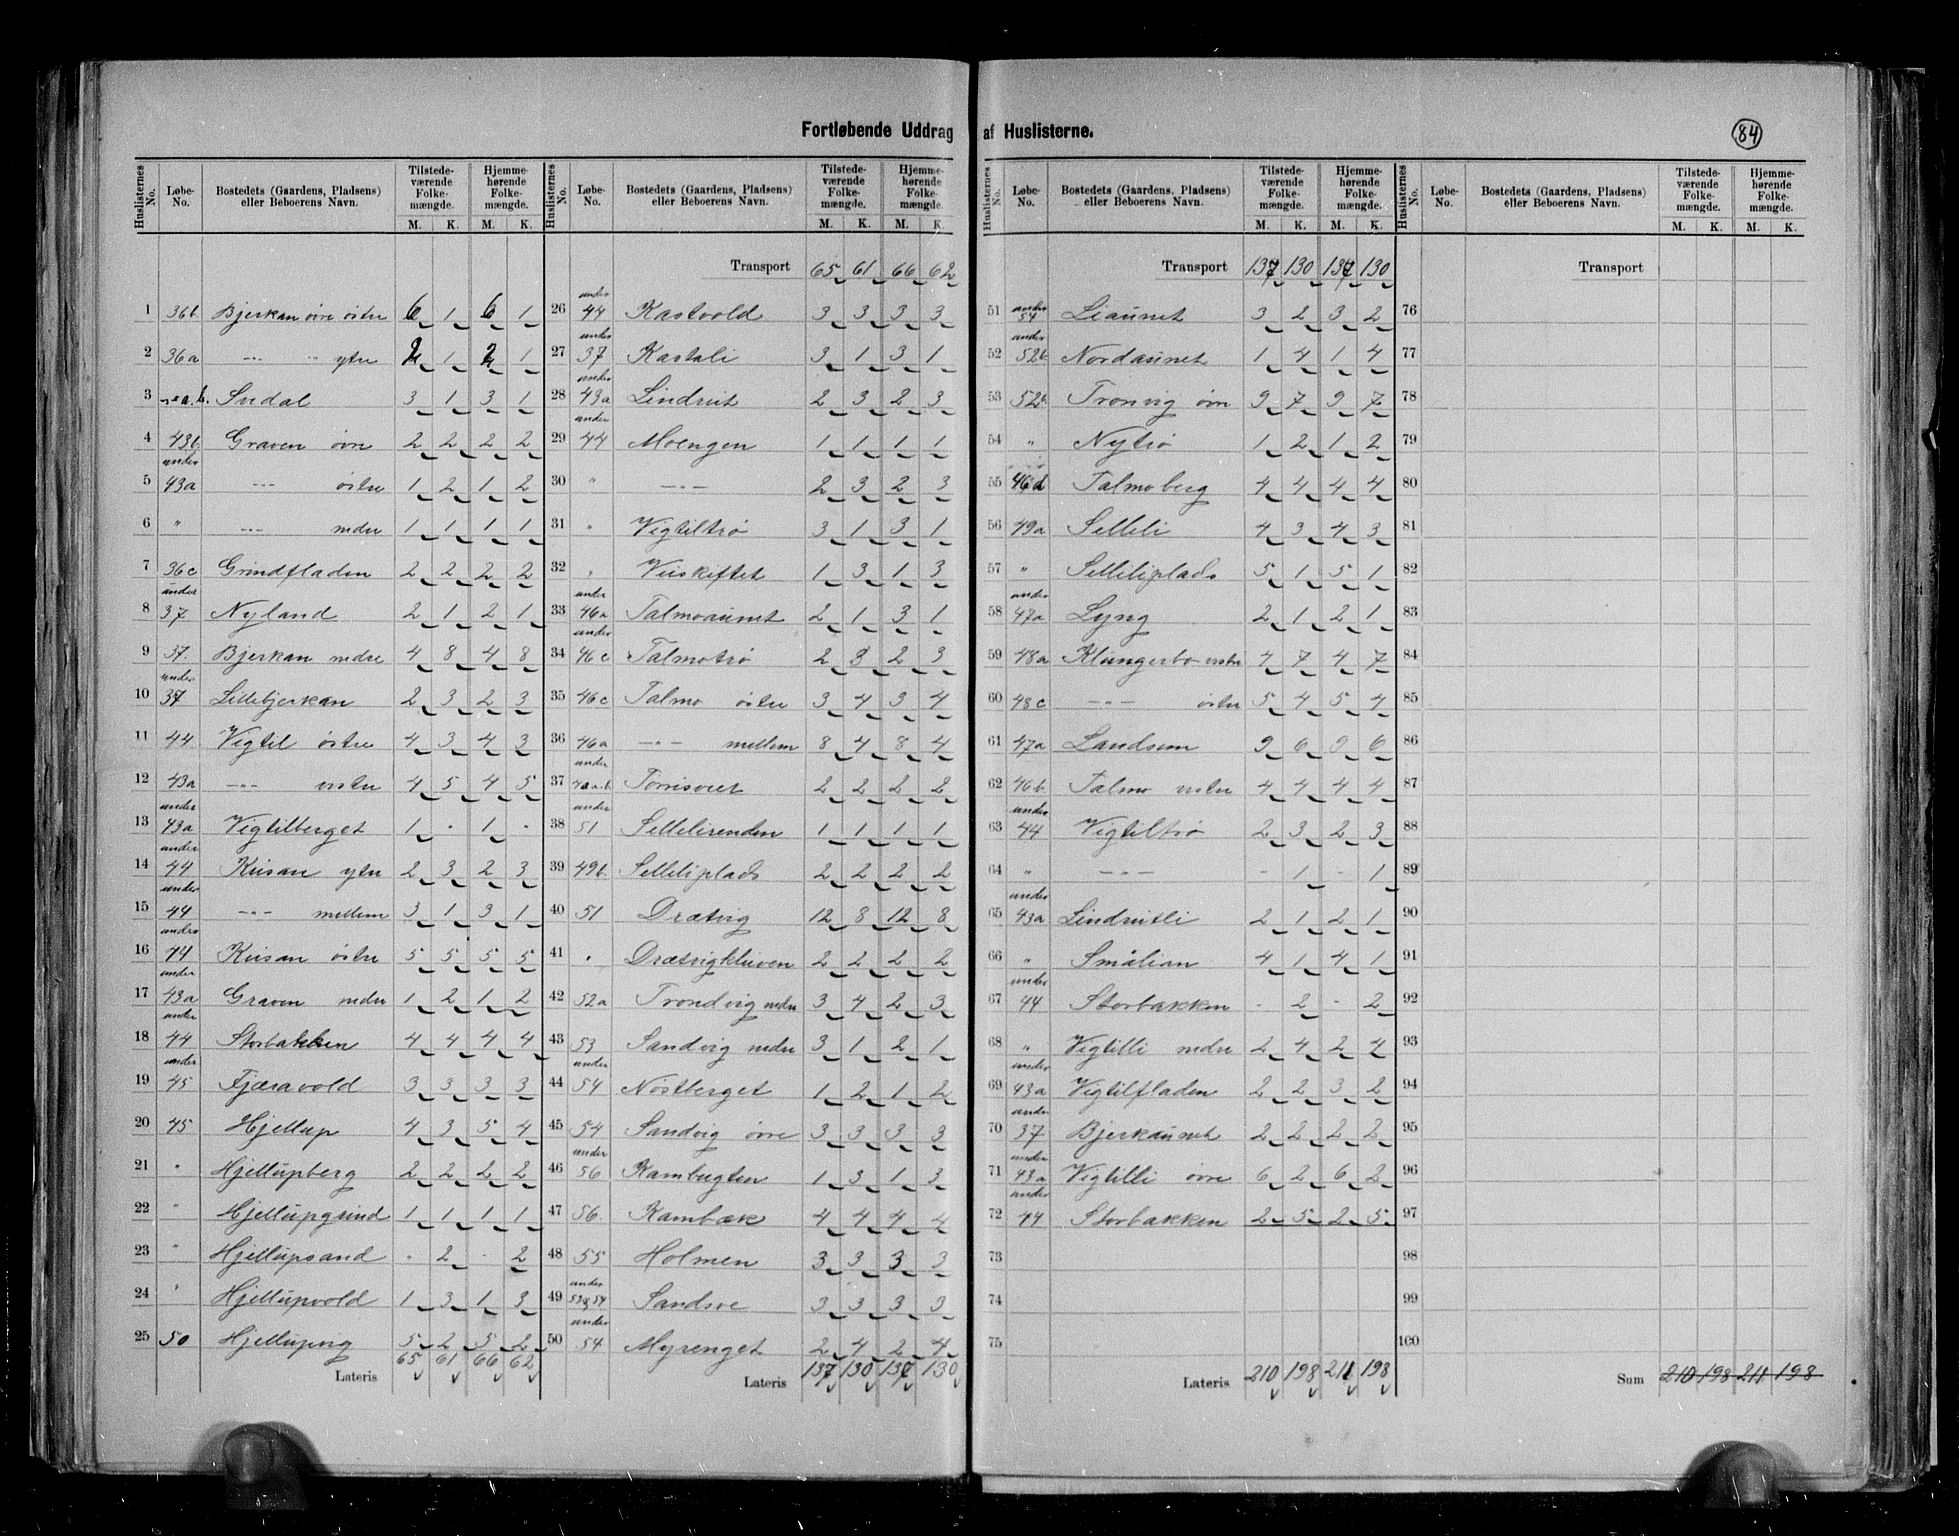 Fortløbende Uddrag af Huslisterne.
84
Huslisternes No. Løbe-No. Bostedets (Gaardens, Pladsens) eller Beboerens Navn. Tilstedeværende Folkemængde. M. K. Hjemmehørende Folkemængde. M. K.
1 36b. Bjerkan øvre østre 6 1 6 1
2 36a -"- " ytre 2 1 2 1
3 Svedal 3 1 3 1
4 43b. Graven øvre 2 2 2 2
5 under 43a -"- østre 1 2 1 2
6 " -"- nedre 1 1 1 1
7 36c Grindfladen 2 2 2 2
8 under 37 Nyland 2 1 2 1
9 37. Bjerkan nedre 4 8 4 8
10 under 37 Lillebjerkan 2 3 2 3
11 44 Vegtil østre 4 3 4 3
12 43a -"- vestre 4 5 4 5
13 under 43a Vegtilberget 1 - 1 -
14 under 44 Kusan ytre 2 3 2 3
15 under 44 -"- mellem 3 1 3 1
16 under 44 Kusan østre 5 5 5 5
17 under 43a Graven nedre 1 2 1 2
18 under 44 Storbakken 4 4 4 4
19 under 45 Fjæravold 3 3 3 3
20 45 Hjellup 4 3 5 4
21 " Hjellupberg 2 2 2 2
22 " Hjellupgrind 1 1 1 1
23 " Hjellupsand - 2 - 2
24 " Hjellupvold 1 3 1 3
25 50 Hjellupeng 5 2 5 2
Lateris 65 61 66 62
Huslisternes No. Løbe-No. Bostedets (Gaardens, Pladsens) eller Beboerens Navn. Tilstedeværende Folkemængde. M. K. Hjemmehørende Folkemængde. M. K.
Transport 65 61 66 62
26 under 44 Kastvold 3 3 3 3
27 under 37 Kastali 3 1 3 1
28 under 43a Lindseit 2 3 2 3
29 under 44 Moengen 1 1 1 1
30 " -"- 2 3 2 3
31 " Vegtiltrø 3 1 3 1
32 " Veiskiftet 1 3 1 3
33 under 46a Talmoaunet 2 1 3 1
34 under 46c Talmotrø 2 3 2 3
35 46c Talmo østre 3 4 3 4
36 46a -"- mellem 8 4 8 4
37 under Torrisvret 2 2 2 2
38 under 51 Sellelirenden 1 1 1 1
39 49b. Selleliplads 2 2 2 2
40 51 Drætvig 12 8 12 8
41 " Drætvigkleven 2 2 2 2
42 52a Trondvig nedre 3 4 2 3
43 53 Sandvig nedre 3 1 2 1
44 under 54 Nøstberget 1 2 1 2
45 54 Sandvig øvre 3 3 3 3
46 under 56 Rambugten 1 3 1 3
47 56. Rambæk 4 4 4 4
48 55 Holmen 3 3 3 3
49 under 53 54 Sandsve 3 3 3 3
50 under 54 Myrenget 2 4 2 4
Lateris 137 130 137 130
Huslisternes No. Løbe-No. Bostedets (Gaardens, Pladsens) eller Beboerens Navn. Tilstedeværende Folkemængde. M. K. Hjemmehørende Folkemængde. M. K.
Transport 137 130 137 130
51 under 54 Liaunet 3 2 3 2
52 under 52b Nordaunet 1 4 1 4
53 52b. Tronvig øvre 9 7 9 7
54 " Nytrø 1 2 1 2
55 46d Talmoberg 4 4 4 4
56 49a Selleli 4 3 4 3
57 " Selleliplads 5 1 5 1
58 under 47a Lyng 2 1 2 1
59 48a Klungerbo vestre 4 7 4 7
60 48c -"- østre 5 4 5 4
61 47a Landsem 9 6 9 6
62 46b. Talmo vestre 4 4 4 4
63 under 44 Vegtiltrø 2 3 2 3
64 " -"- - 1 - 1
65 under 43a Lindseitli 2 1 2 1
66 " Smålian 4 1 4 1
67 under 44 Storbakken - 2 - 2
68 " Vegtilli nedre 2 4 2 4
69 under 43a Vegtilfladen 2 2 3 2
70 under 37 Bjerkaunet 2 2 2 2
71 under 43a Vegtilli øvre 6 2 6 2
72 under 44 Storbakken 2 5 2 5
73
74
75
Lateris 210 198 211 198
Huslisternes No. Løbe-No. Bostedets (Gaardens, Pladsens) eller Beboerens Navn. Tilstedeværende Folkemængde. M. K. Hjemmehørende Folkemængde. M. K.
Transport
76
77
78
79
80
81
82
83
84
85
86
87
88
89
90
91
92
93
94
95
96
97
98
99
100
Sum 210 198 211 198